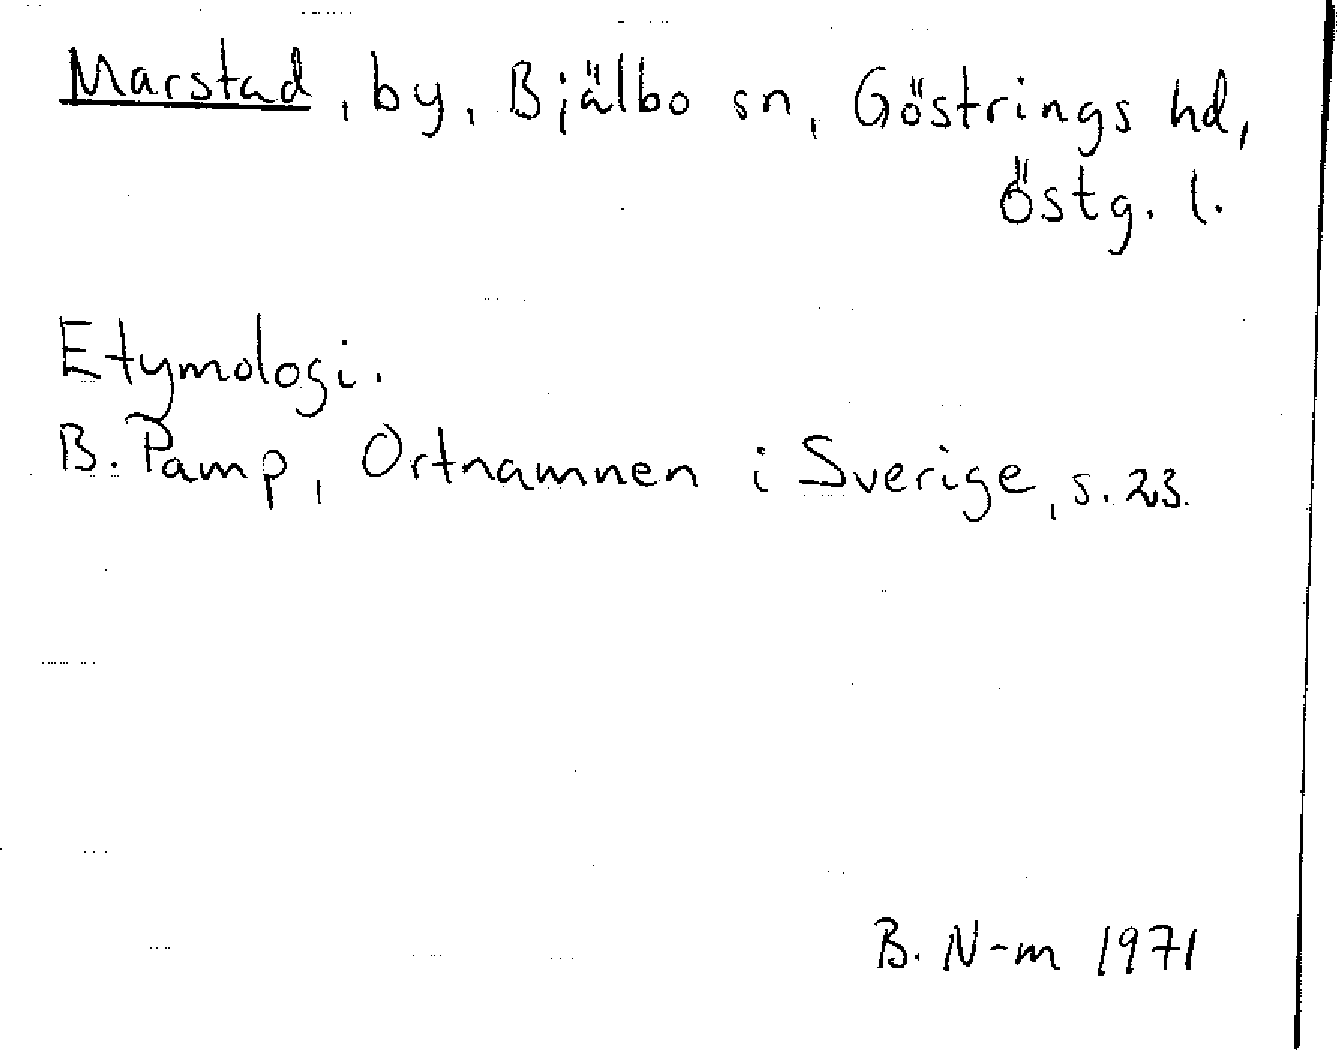 Marstad, by, Bjälbo sn, Göstrings hd,
Östg. l.
Etymologi.
B. Pamp, Ortnamnen i Sverige, s. 23.
B. N-m 1971